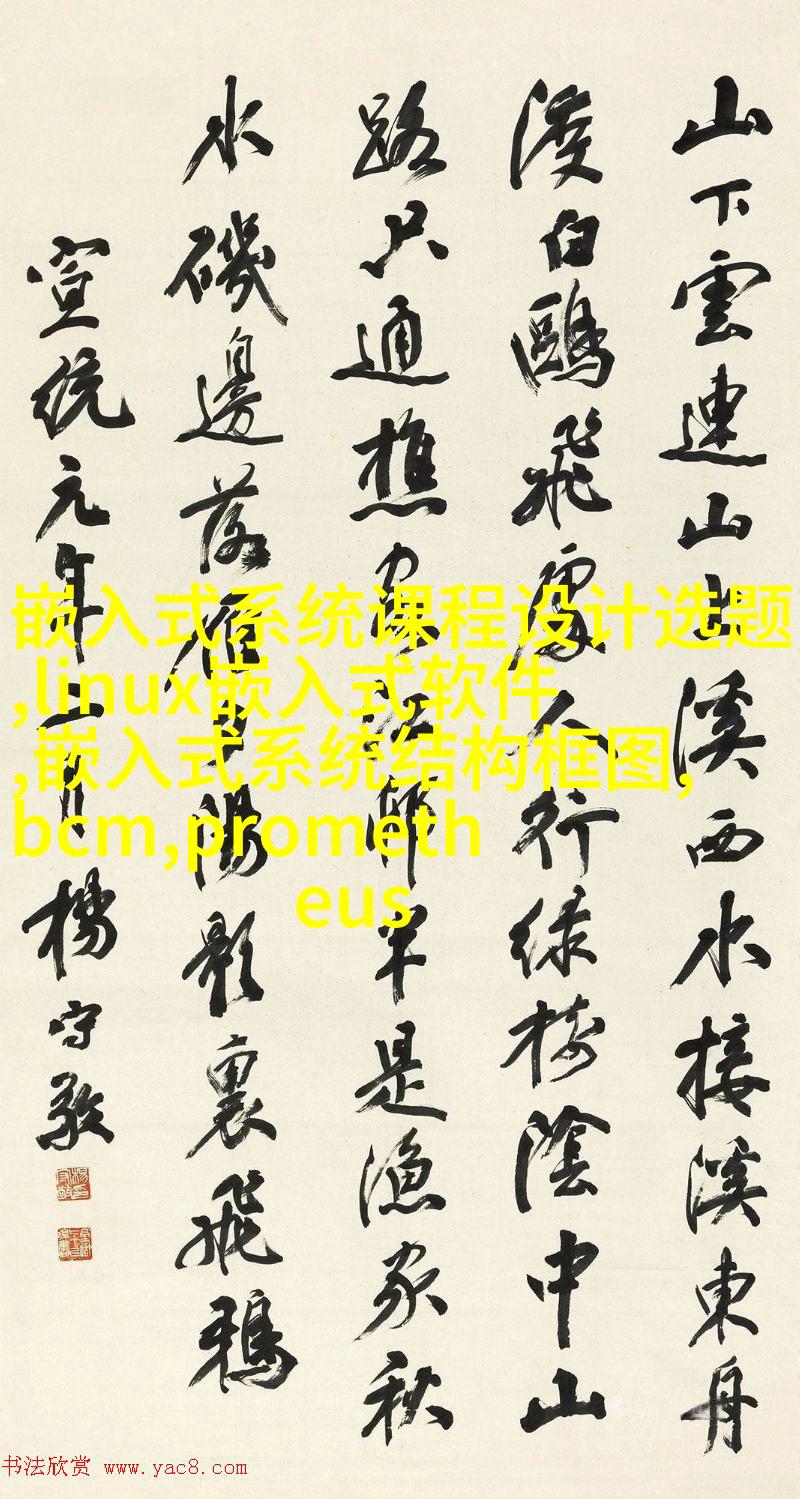 山下雲連山上溪西水接溪東舟
渡白鷗飛處人行綠樹陰中山
路只通樵客江邨半是漁家秋
水磯邊落雁夕陽影裏飛鴉
宣統元年二月楊守敬
嵌入式系统课程设计选题
,linux嵌入式软件
,嵌入式系统结构框图,
bcm,prometh
eus
书法欣赏 www.yac8.com